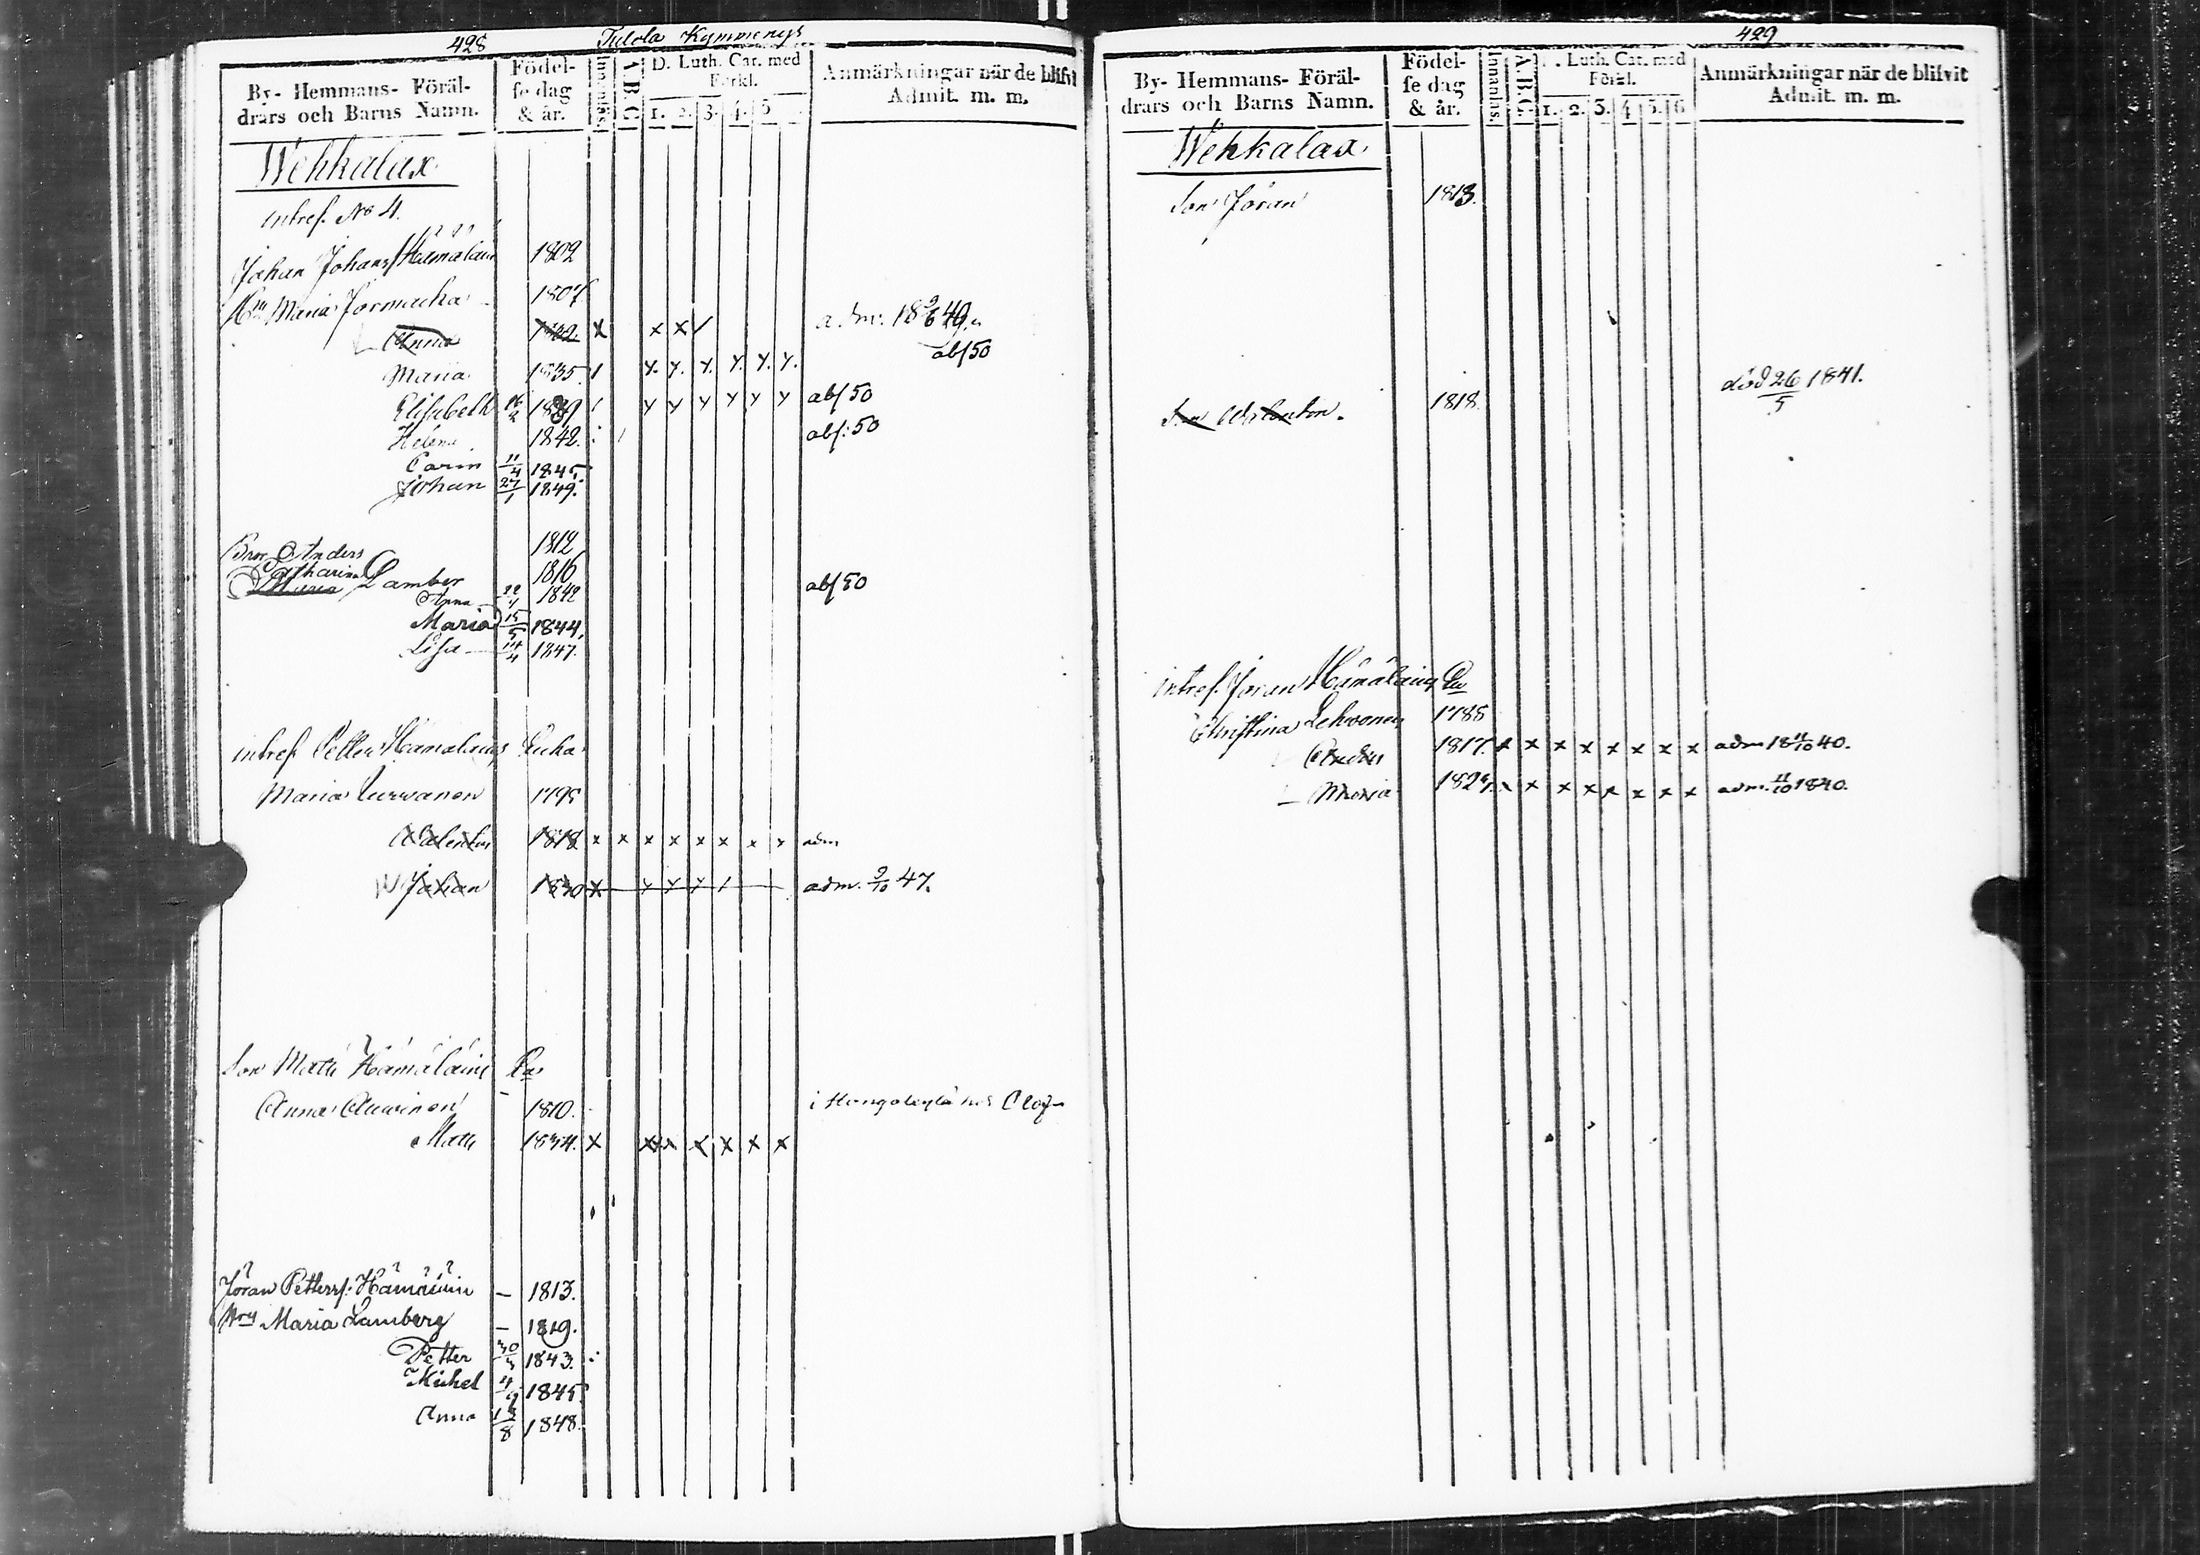 428
Tulola Kymmenys
By- Hemmans- Föräl-
drars och Barns Namn.
Födel-
se dag
& år.
Innanläs.
A.B.C.
D. Luth. Cat. med
Förkl.
1. 2. 3. 4. 5
Anmärkningar när de blifvit
Admit. m. m.
Wehkalax
intres. No 4.
Johan Johans. Hämäläin 1802
Maria 1807
Anna 1832 x x x / adm. 18 40
Maria 1835 abs 50
Elisabeth 16/2 1839 abs 50
Helena 1842. abs: 50
Carin 11/4 1845.
Johan 27/1 1849.
Bror Anders 1812
Catharina Lamber 1816
Maria
Anna 22/4 1842 abs 50
Maria 15/5 1844,
Lisa 14/4 1847.
intres. Petter Hämäläins Enka
Maria 1795
Valentin 1818 x x x x x x x x adm
Johan 1830 x adm. 9/10 47.
Son Matts Hämäläins
Anna Auvinen 1810.
Matts 1834. x x x x x x x
Jöran Petterss: Hämäläin — 1813.
Maria Lamberg — 1819.
Petter 1843.
Michel 4/9 1845
Anna 1848.
429
By- Hemmans- Föräl-
drars och Barns Namn.
Födel-
se dag
& år.
Innanläs.
A.B.C.
Luth. Cat. med
Förkl.
1. 2. 3. 4 5. 6
Anmärkningar när de blifvit
Admit. m. m.
Wehkalax
Son Jöran 1813.
Son 1818. död 26/5 1841.
intres. Jöran Hämäläins
Christina Lehvonen 1788
Anders 1817. x x x x x x x x adm 18 11/10 40.
Maria x x x x x x x adm. 11/10 1840.